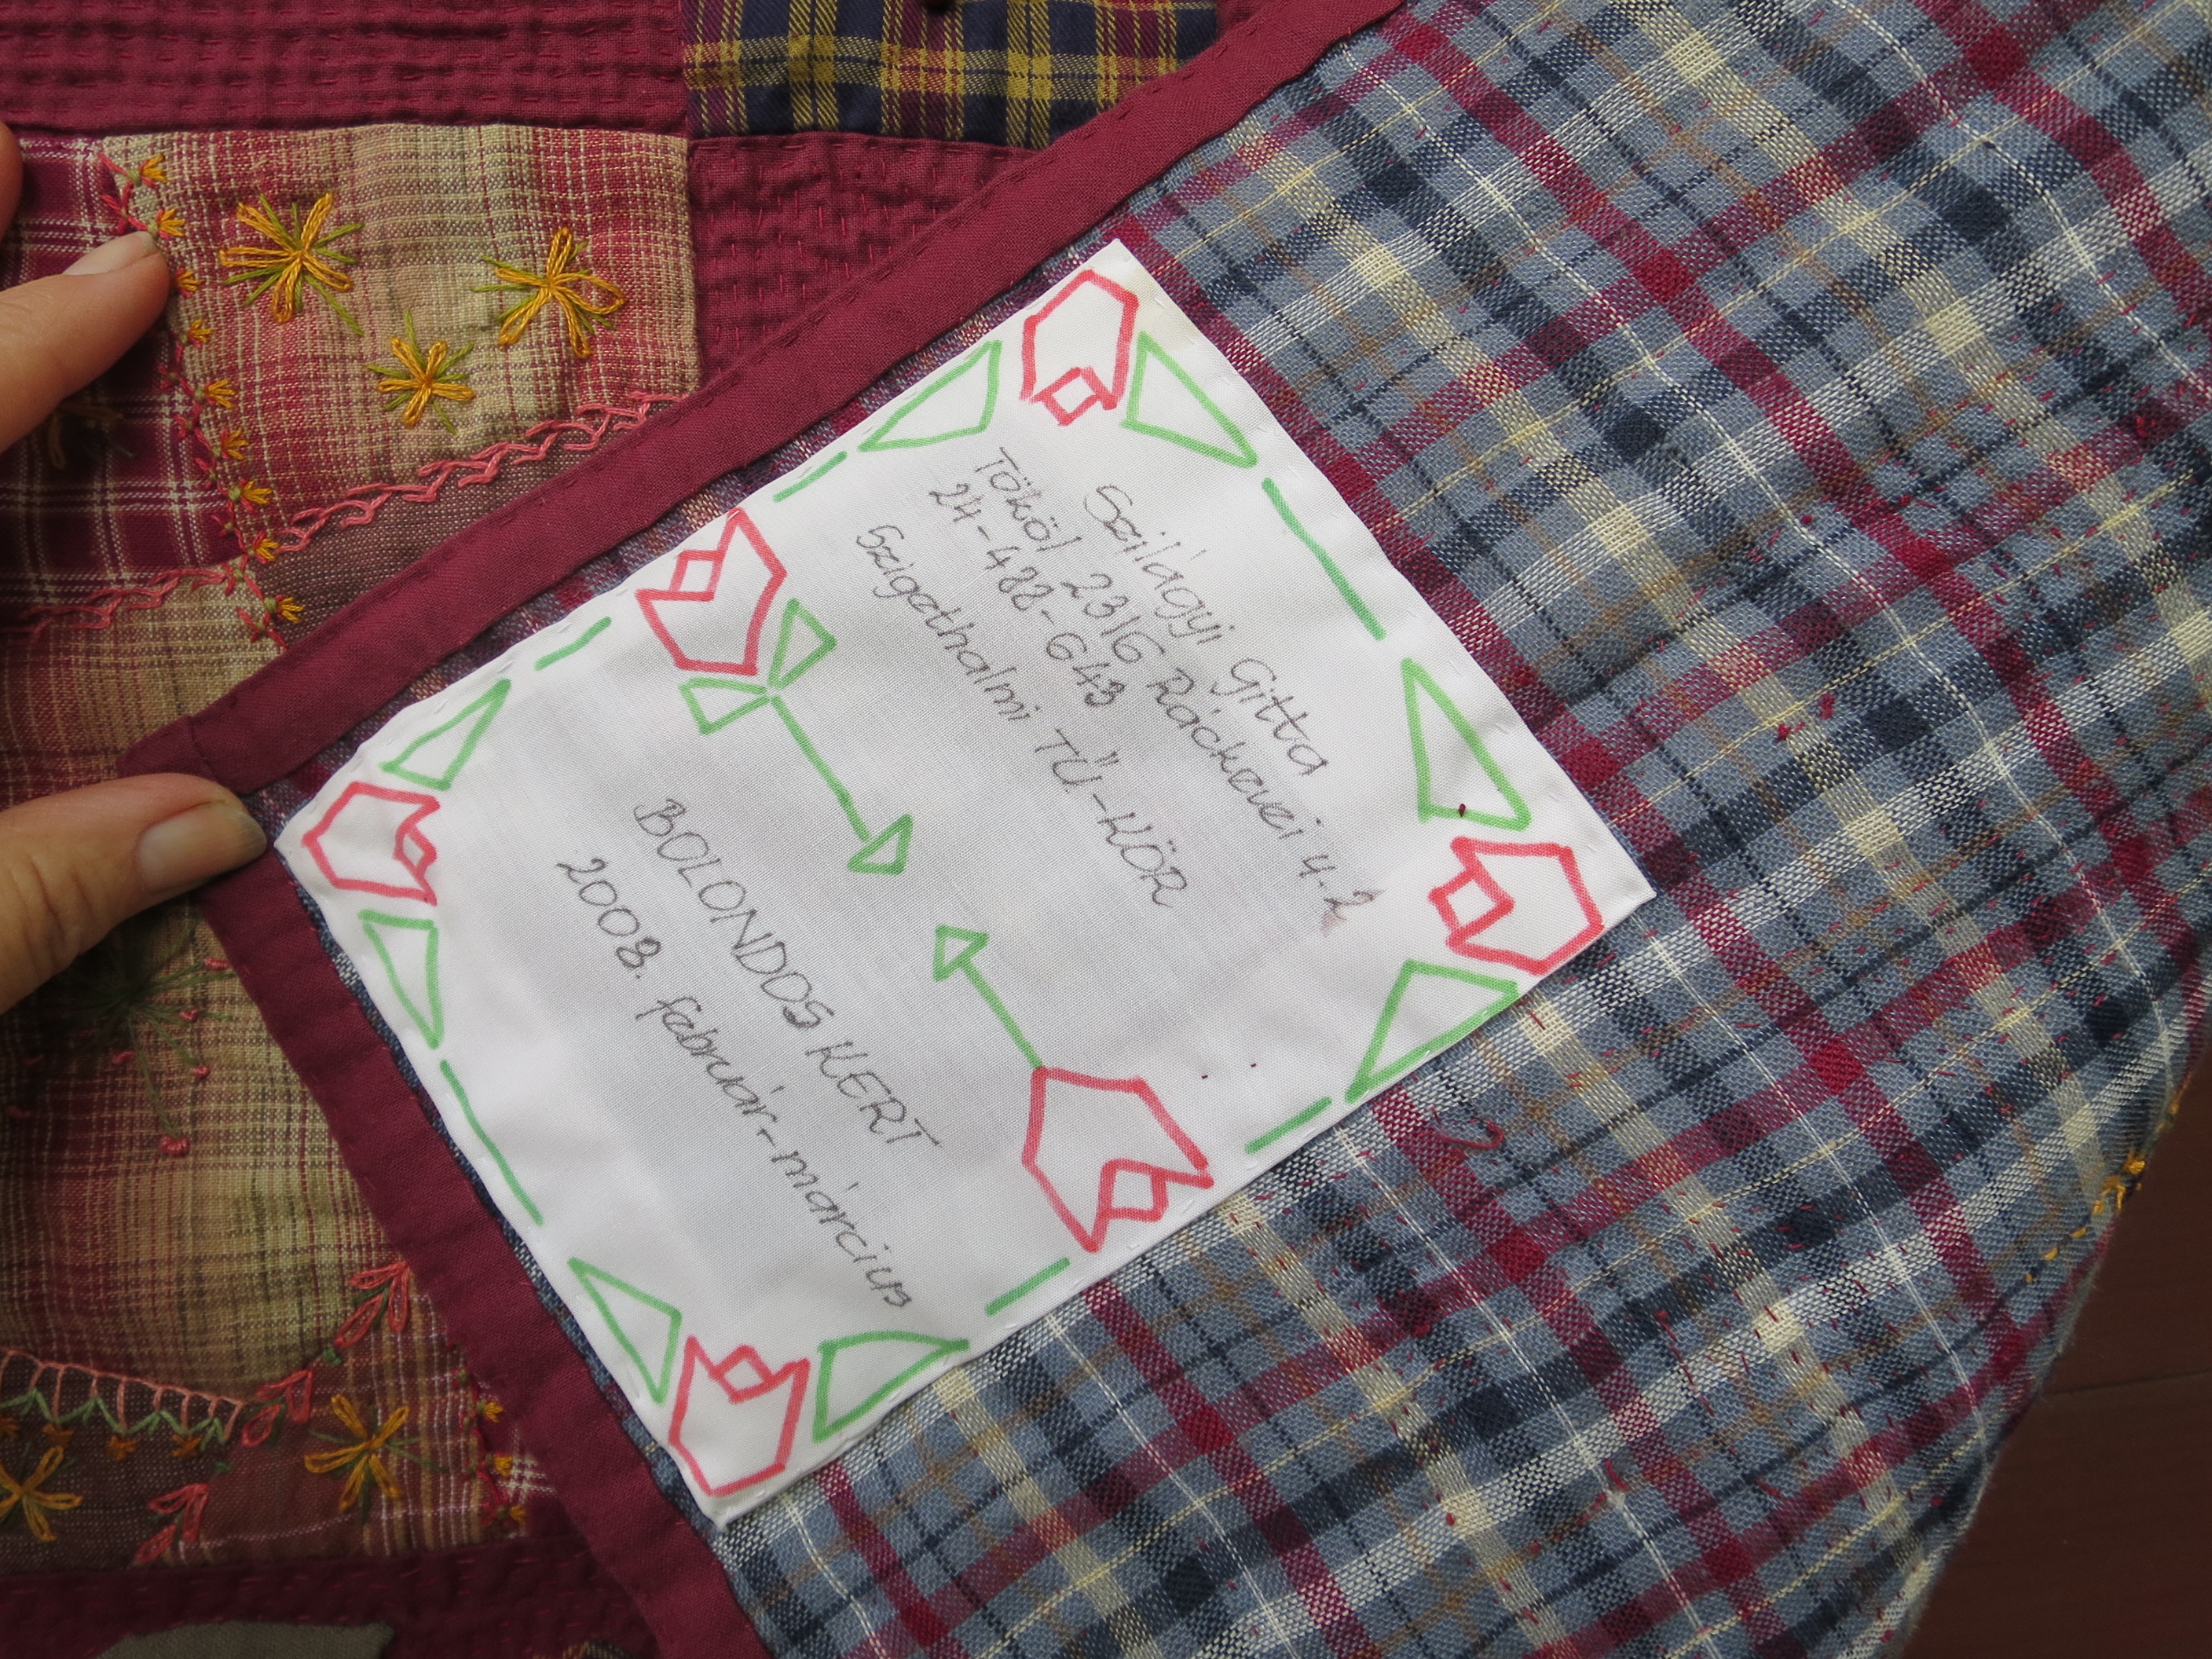 Szilágyi Gitta
Tököl 2316 Ráckevei u.2
24-488-643
Szigethalmi TŰ-KÖR
BOLONDOS KERT
2008. február-március